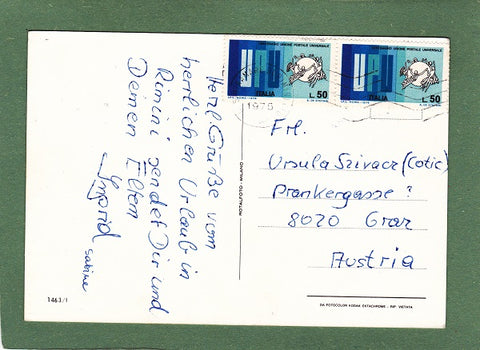 Herzl. Grüße vom
herrlichen Urlaub in
Rimini sendet Dir und
Deinen Eltern
Ingrid
Sabine
CENTENARIO UNIONE POSTALE UNIVERSALE
ITALIA
L. 50
CENTENARIO UNIONE POSTALE UNIVERSALE
ITALIA
L. 50
1975
Frl.
Ursula Szivacz (Cotic)
Prankergasse ?
8020 Graz
Austria
1463/1
DA FOTOCOLOR KODAK EKTACHROME - RIP. VIETATA